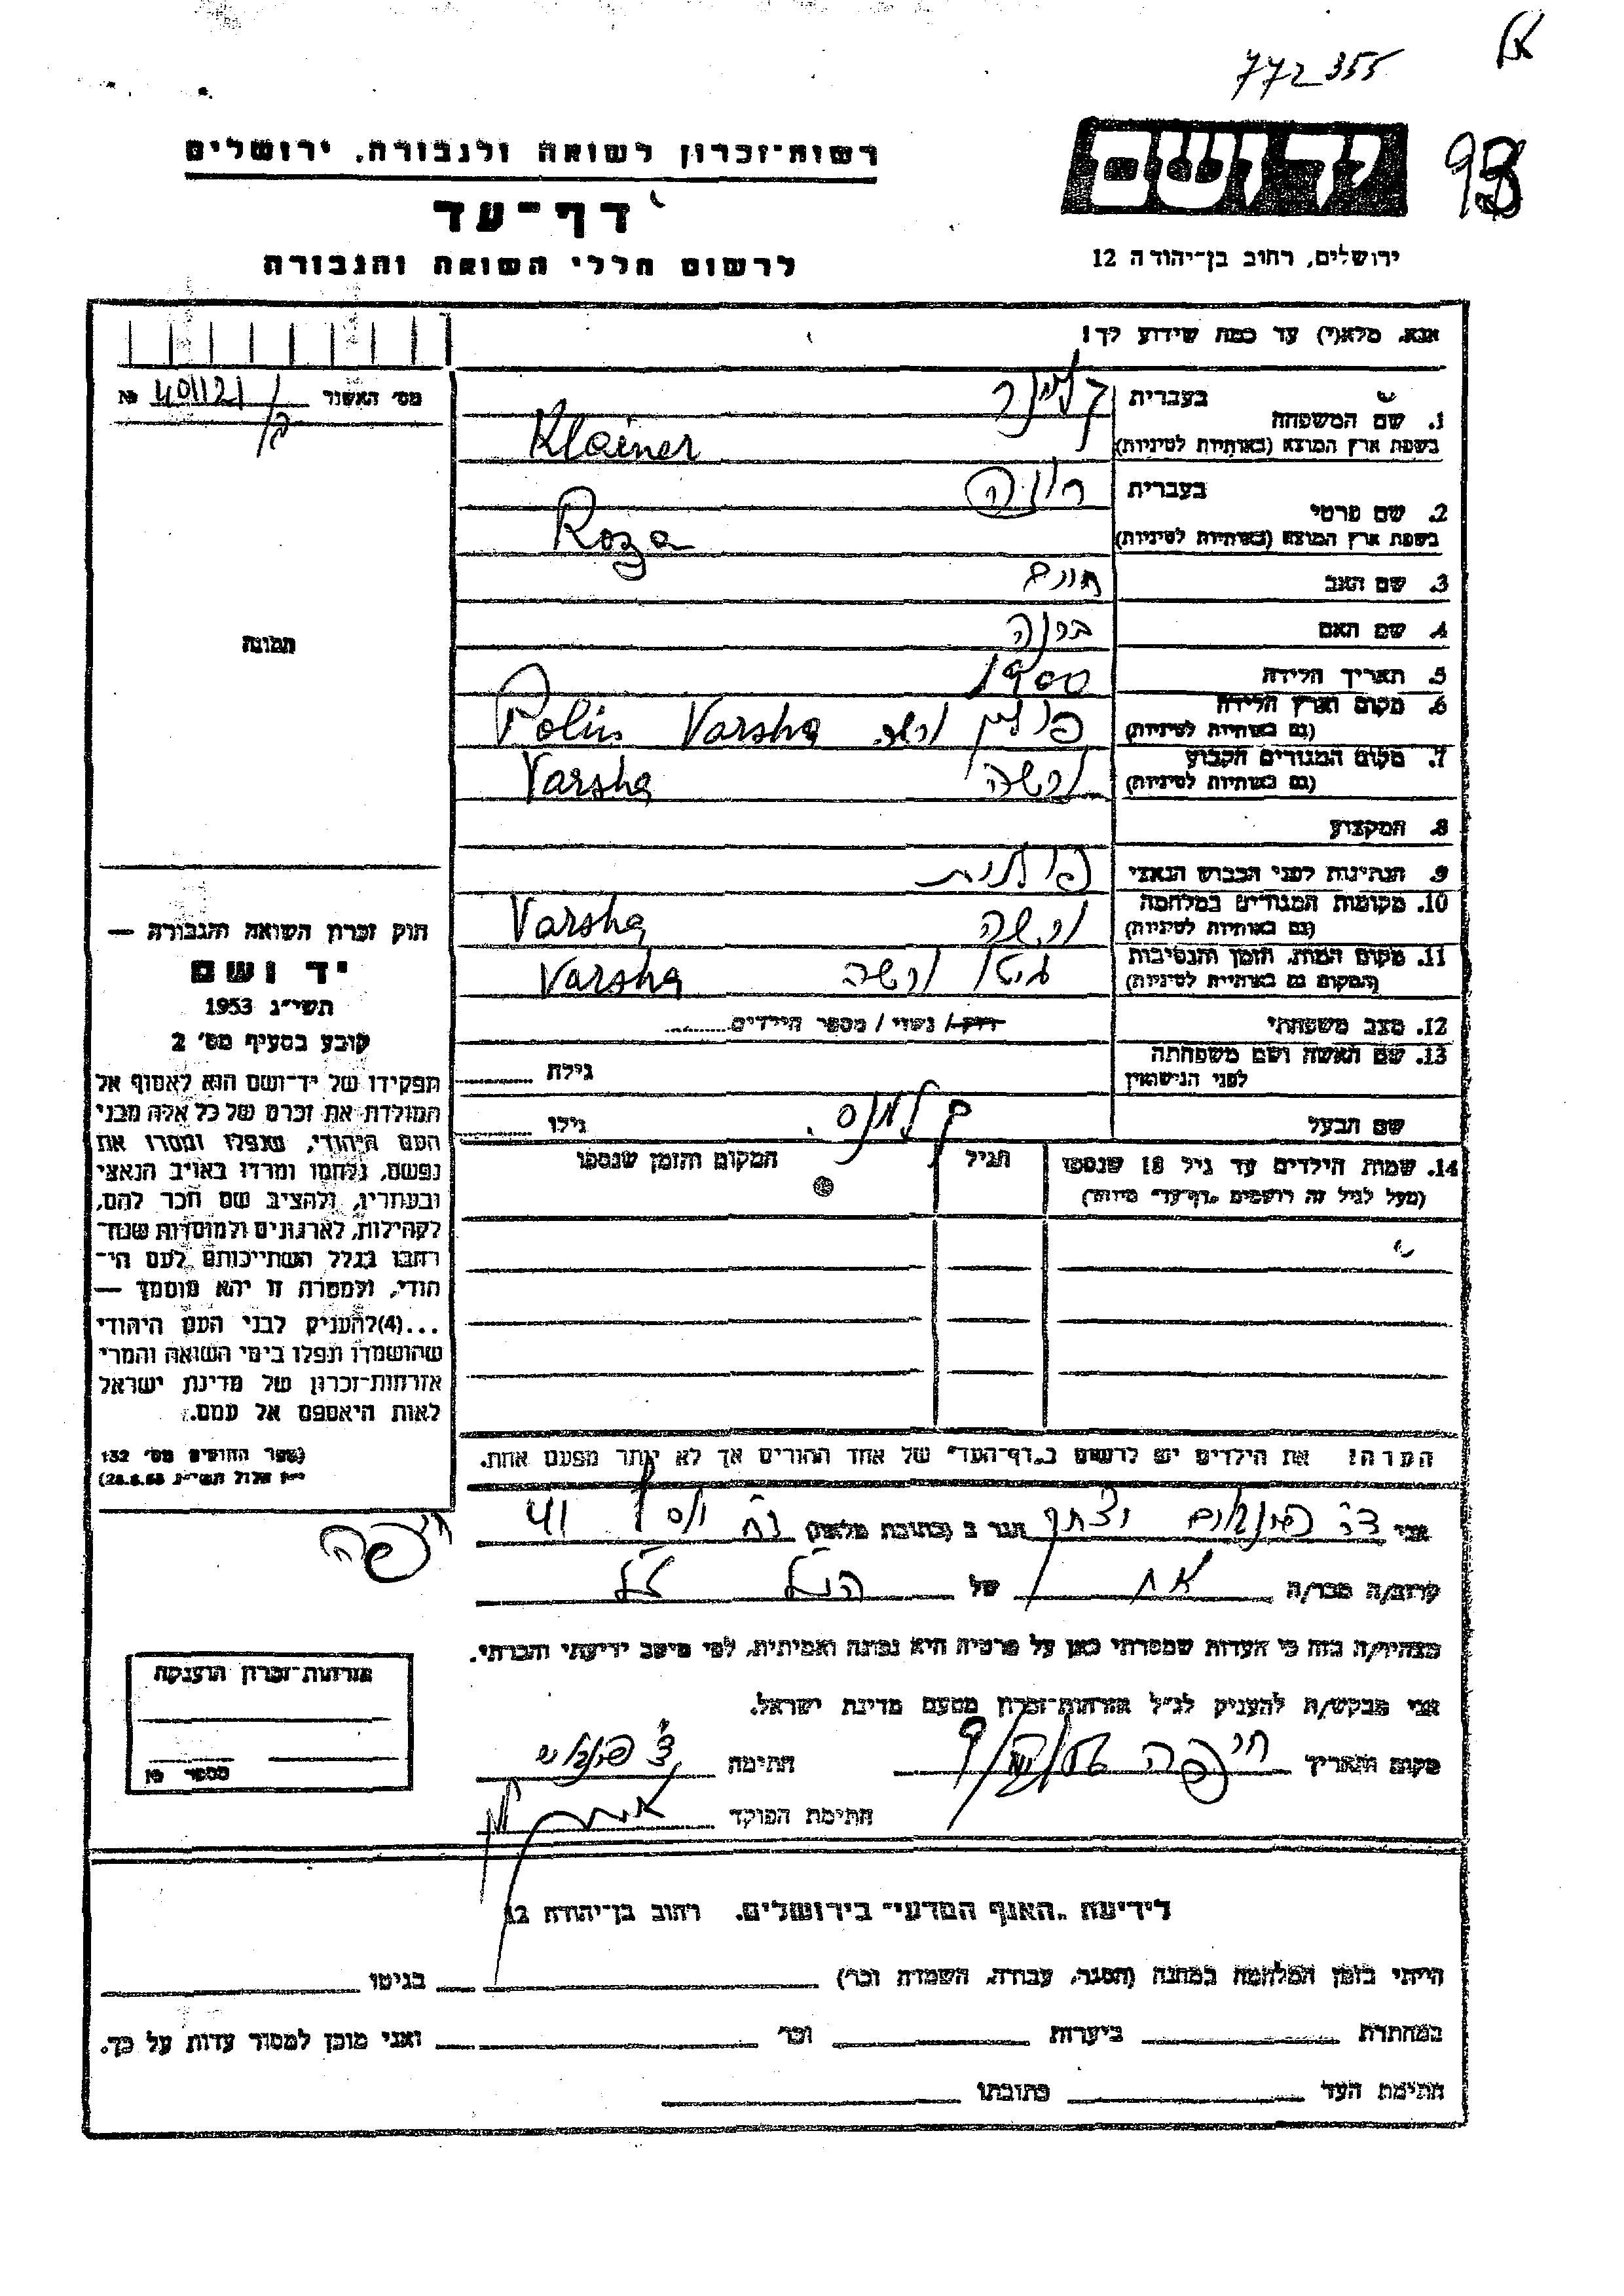 772355
93
רשות־זכרון לשואה ולגבורה, ירושלים
יד ושם
דף־עד
ירושלים, רחוב בן־יהודה 12
לרשום חללי השואה והגבורה
אנא, מלא(י) עד כמה שידוע לך!
מס' האשור 401121 №
1. שם המשפחה
בעברית קליינר
בשפת ארץ המוצא (באותיות לטיניות) Klainer
2. שם פרטי
בעברית רוזה
בשפת ארץ המוצא (באותיות לטיניות) Roza
3. שם האב חיים
4. שם האם ברונה
תמונה
5. תאריך הלידה 1900
6. מקום וארץ הלידה
(גם באותיות לטיניות) פולין ורשה Polin Varsha
7. מקום המגורים הקבוע
(גם באותיות לטיניות) ורשה Varsha
8. המקצוע
9. הנתינות לפני הכבוש הנאצי פולנית
10. מקומות המגורים במלחמה
(גם באותיות לטיניות) ורשה Varsha
11. מקום המות, הזמן והנסיבות
(המקום גם באותיות לטיניות) גיטו ורשה Varsha
12. מצב משפחתי רווק / נשוי / מספר הילדים
13. שם האשה ושם משפחתה
לפני הנישואין גילה
שם הבעל גילו
14. שמות הילדים עד גיל 18 שנספו
(מעל לגיל זה רושמים "דף־עד" מיוחד)
הגיל
המקום והזמן שנספו
חוק זכרון השואה והגבורה —
יד ושם
תשי"ג 1953
קובע בסעיף מס' 2
תפקידו של יד־ושם הוא לאסוף אל
המולדת את זכרם של כל אלה מבני
העם היהודי, שנפלו ומסרו את
נפשם, נלחמו ומרדו באויב הנאצי
ובעוזריו, ולהציב שם וזכר להם,
לקהילות, לארגונים ולמוסדות שנח־
רבו בגלל השתייכותם לעם הי־
הודי, ולמטרה זו יהא מוסמך —
...(4)להעניק לבני העם היהודי
שהושמדו ונפלו בימי השואה והמרי
אזרחות־זכרון של מדינת ישראל
לאות היאספם אל עמם.
(ספר החוקים מס' 132
י"ז אלול תשי"ג 28.8.53)
הערה: את הילדים יש לרשום ב"דף־העד" של אחד ההורים אך לא יותר מפעם אחת.
אני הגר ב (כתובת מלאה) 41
חיפה
קרוב/ה מכר/ה של הנ"ל
מצהיר/ה בזה כי העדות שמסרתי כאן על פרטיה היא נכונה ואמיתית, לפי מיטב ידיעתי והכרתי.
אני מבקש/ת להעניק לנ"ל אזרחות־זכרון מטעם מדינת ישראל.
מקום ותאריך חיפה חתימה
חתימת הפוקד
אזרחות־זכרון הוענקה
מספר מן
לידיעת "האגף המדעי" בירושלים, רחוב בן־יהודה 12
הייתי בזמן המלחמה במחנה (הסגר, עבודה, השמדה וכו') בגיטו
במחתרת ביערות וכו' ואני מוכן למסור עדות על כך.
חתימת העד כתובתו